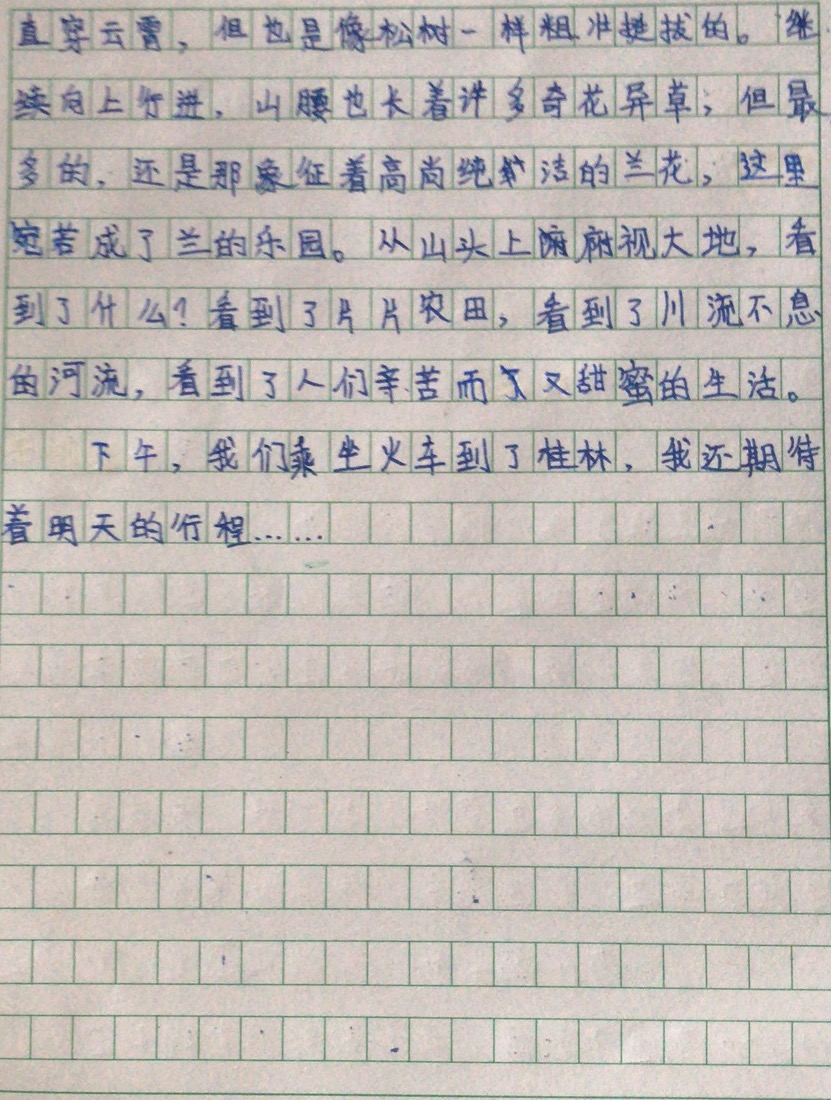 直穿云霄，但也是像松树一样粗壮挺拔的。继
续向上行进，山腰也长着许多奇花异草；但最
多的，还是那象征着高尚纯洁的兰花，这里
宛若成了兰的乐园。从山头上俯视大地，看
到了什么？看到了片片农田，看到了川流不息
的河流，看到了人们辛苦而又甜蜜的生活。
下午，我们乘坐火车到了桂林，我还期待
着明天的行程……